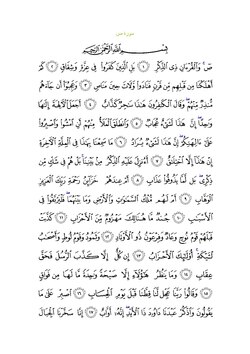 سورة ص
بِسْمِ اللَّهِ الرَّحْمَٰنِ الرَّحِيمِ
صٓ وَالْقُرْءَانِ ذِي الذِّكْرِ ١ بَلِ الَّذِينَ كَفَرُوا فِي عِزَّةٍ وَشِقَاقٍ ٢ كَمْ
أَهْلَكْنَا مِن قَبْلِهِم مِّن قَرْنٍ فَنَادَوا وَّلَاتَ حِينَ مَنَاصٍ ٣ وَعَجِبُوا أَن جَاءَهُم
مُّنذِرٌ مِّنْهُمْ وَقَالَ الْكَافِرُونَ هَٰذَا سَاحِرٌ كَذَّابٌ ٤ أَجَعَلَ الْآلِهَةَ إِلَٰهًا
وَاحِدًا إِنَّ هَٰذَا لَشَيْءٌ عُجَابٌ ٥ وَانطَلَقَ الْمَلَأُ مِنْهُمْ أَنِ امْشُوا وَاصْبِرُوا
عَلَىٰ آلِهَتِكُمْ إِنَّ هَٰذَا لَشَيْءٌ يُرَادُ ٦ مَا سَمِعْنَا بِهَٰذَا فِي الْمِلَّةِ الْآخِرَةِ
إِنْ هَٰذَا إِلَّا اخْتِلَاقٌ ٧ أَءُنزِلَ عَلَيْهِ الذِّكْرُ مِن بَيْنِنَا بَلْ هُمْ فِي شَكٍّ مِّن
ذِكْرِي بَل لَّمَّا يَذُوقُوا عَذَابِ ٨ أَمْ عِندَهُمْ خَزَائِنُ رَحْمَةِ رَبِّكَ الْعَزِيزِ
الْوَهَّابِ ٩ أَمْ لَهُم مُّلْكُ السَّمَاوَاتِ وَالْأَرْضِ وَمَا بَيْنَهُمَا فَلْيَرْتَقُوا فِي
الْأَسْبَابِ ١٠ جُندٌ مَّا هُنَالِكَ مَهْزُومٌ مِّنَ الْأَحْزَابِ ١١ كَذَّبَتْ
قَبْلَهُمْ قَوْمُ نُوحٍ وَعَادٌ وَفِرْعَوْنُ ذُو الْأَوْتَادِ ١٢ وَثَمُودُ وَقَوْمُ لُوطٍ وَأَصْحَابُ
لْـَٔيْكَةِ أُولَٰئِكَ الْأَحْزَابُ ١٣ إِن كُلٌّ إِلَّا كَذَّبَ الرُّسُلَ فَحَقَّ
عِقَابِ ١٤ وَمَا يَنظُرُ هَٰؤُلَاءِ إِلَّا صَيْحَةً وَاحِدَةً مَّا لَهَا مِن فَوَاقٍ
١٥ وَقَالُوا رَبَّنَا عَجِّل لَّنَا قِطَّنَا قَبْلَ يَوْمِ الْحِسَابِ ١٦ اصْبِرْ عَلَىٰ مَا
يَقُولُونَ وَاذْكُرْ عَبْدَنَا دَاوُودَ ذَا الْأَيْدِ إِنَّهُ أَوَّابٌ ١٧ إِنَّا سَخَّرْنَا الْجِبَالَ